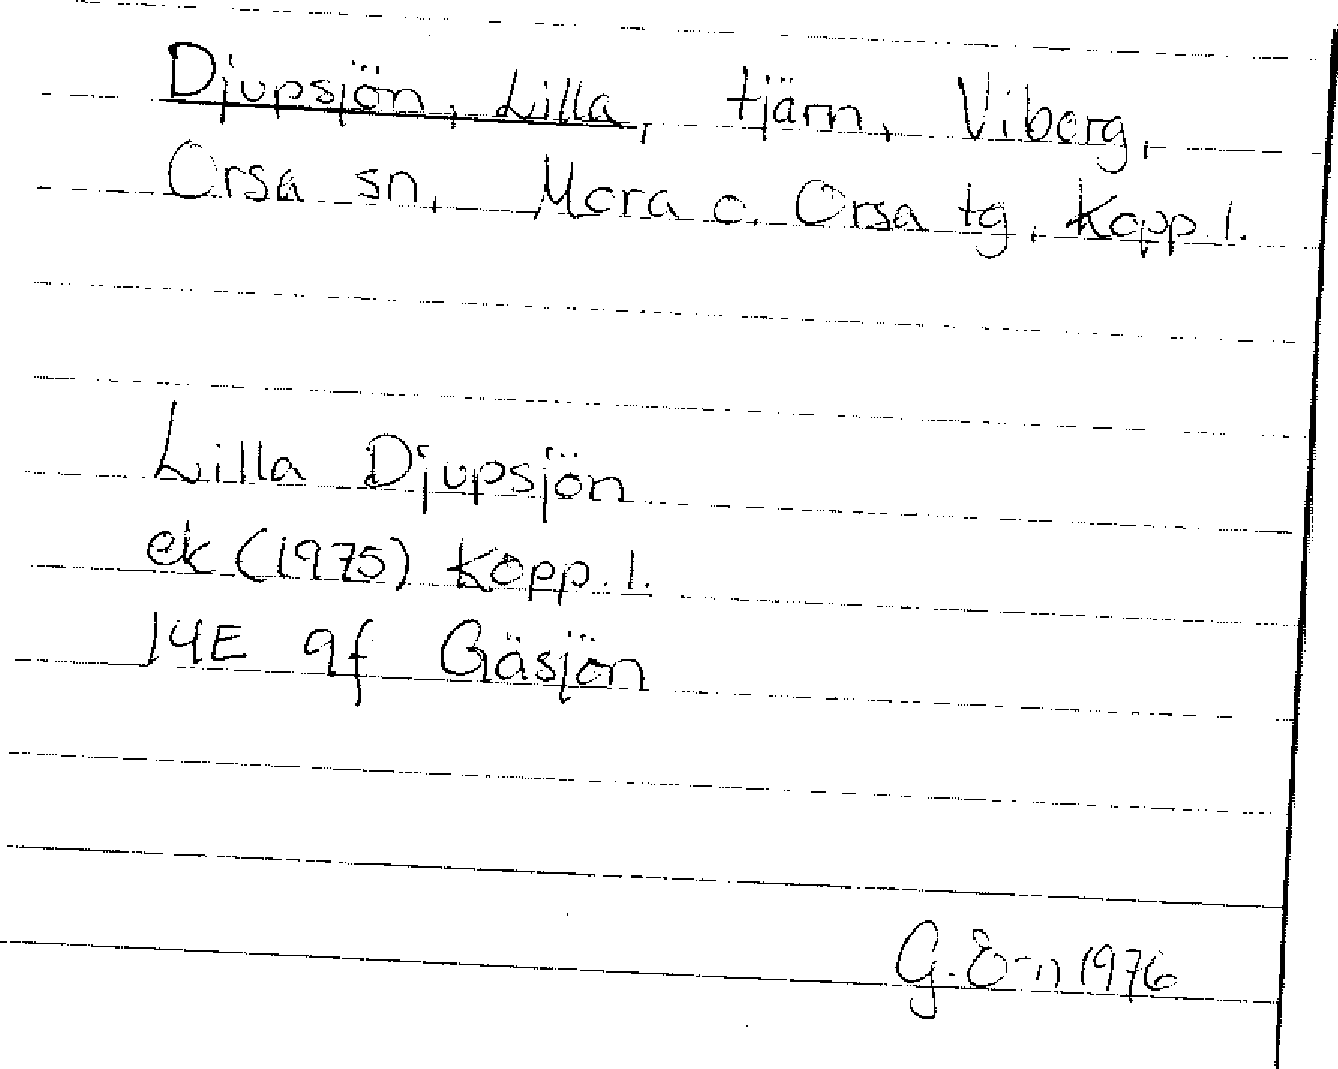 Djupsjön, Lilla, tjärn, Viberg,
Orsa sn, Mora o. Orsa tg, Kopp. l.
Lilla Djupsjön
ek (1975) Kopp. l.
14E 9f Gäsjön
G. Ö-n 1976